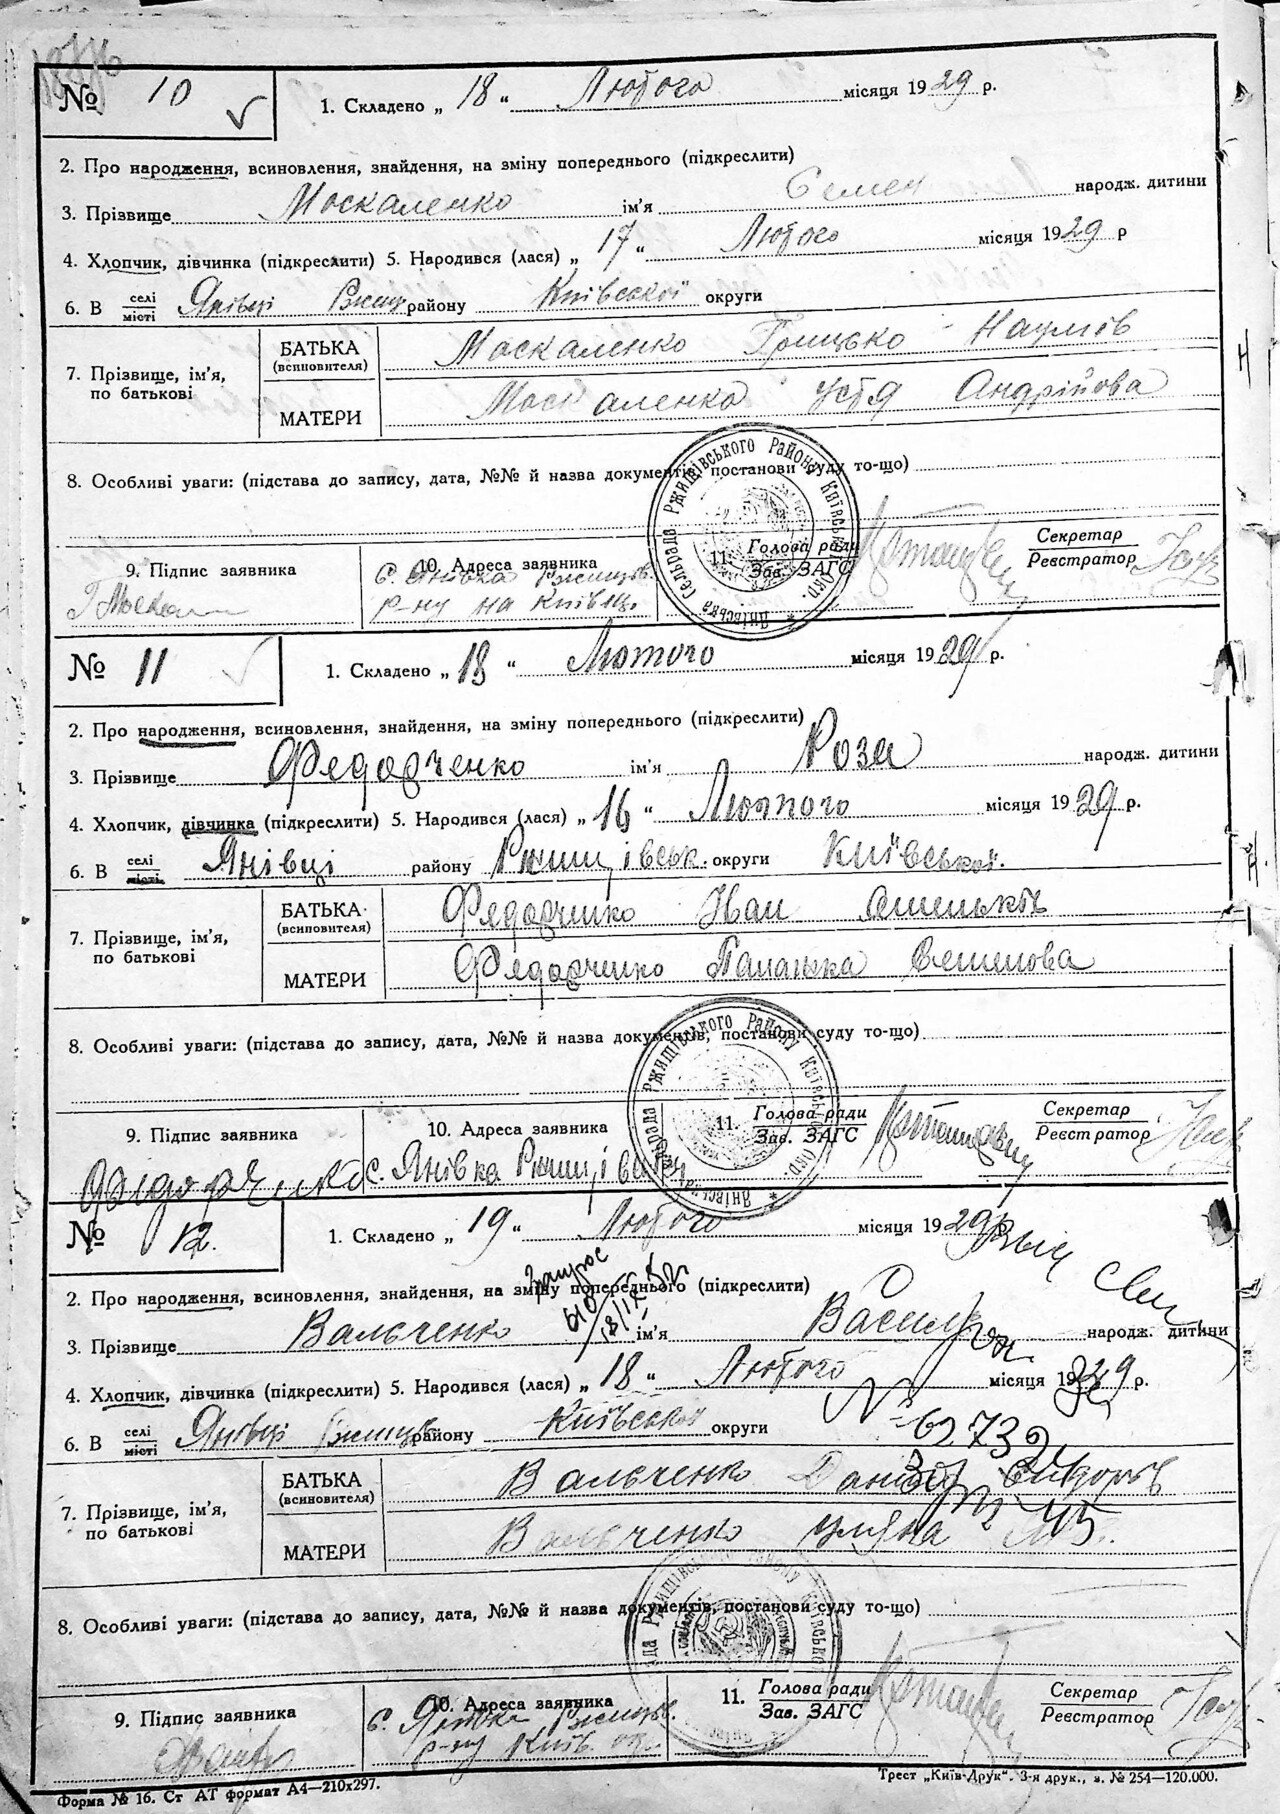 № 10
1. Складено „ 18 “ Лютого місяця 1929 р.
2. Про народження, всиновлення, знайдення, на зміну попереднього (підкреслити)
3. Прізвище Москаленко ім'я Семен народж. дитини
4. Хлопчик, дівчинка (підкреслити) 5. Народився (лася) „ 17 “ Лютого місяця 1929 р
6. В селі/місті Янівці Ржищ району Київської округи
7. Прізвище, ім'я, по батькові
БАТЬКА (всиновителя) Москаленко Грицько Наумів
МАТЕРИ Москаленко Устя Андрійова
8. Особливі уваги: (підстава до запису, дата, №№ й назва документів, постанови суду то-що)
Янівська Сельрада Ржищівського Району Київськ. Окр.
9. Підпис заявника
10. Адреса заявника
11. Голова ради / Зав. ЗАГС
Секретар / Реєстратор
Г Моска
с. Янівка Ржищів.
р-ну на Київщ.
№ 11
1. Складено „ 18 “ Лютого місяця 1929 р.
2. Про народження, всиновлення, знайдення, на зміну попереднього (підкреслити)
3. Прізвище Федорченко ім'я Роза народж. дитини
4. Хлопчик, дівчинка (підкреслити) 5. Народився (лася) „ 16 “ Лютого місяця 1929 р.
6. В селі/місті Янівці району Ржищівськ. округи Київської.
7. Прізвище, ім'я, по батькові
БАТЬКА (всиновителя) Федорченко Іван
МАТЕРИ Федорченко Палажка Семенова
8. Особливі уваги: (підстава до запису, дата, №№ й назва документів, постанови суду то-що)
Янівська Сельрада Ржищівського Району Київськ. Окр.
9. Підпис заявника
10. Адреса заявника
11. Голова ради / Зав. ЗАГС
Секретар / Реєстратор
Федорченко
с. Янівка Ржищівськ
№ 12.
1. Складено „ 19 “ Лютого місяця 1929 р.
2. Про народження, всиновлення, знайдення, на зміну попереднього (підкреслити)
3. Прізвище Вальченко ім'я Василь народж. дитини
4. Хлопчик, дівчинка (підкреслити) 5. Народився (лася) „ 18 “ Лютого місяця 1929 р.
6. В селі/місті Янівці Ржищів району Київської округи
7. Прізвище, ім'я, по батькові
БАТЬКА (всиновителя) Вальченко Данило
МАТЕРИ Вальченко Уляна
8. Особливі уваги: (підстава до запису, дата, №№ й назва документів, постанови суду то-що)
9. Підпис заявника
10. Адреса заявника
11. Голова ради / Зав. ЗАГС
Секретар / Реєстратор
с. Янівка Ржищів.
р-ну Київ. окр.
Форма № 16. Ст АТ формат А4—210х297.
Трест „Київ-Друк“. 3-я друк., з. № 254—120.000.